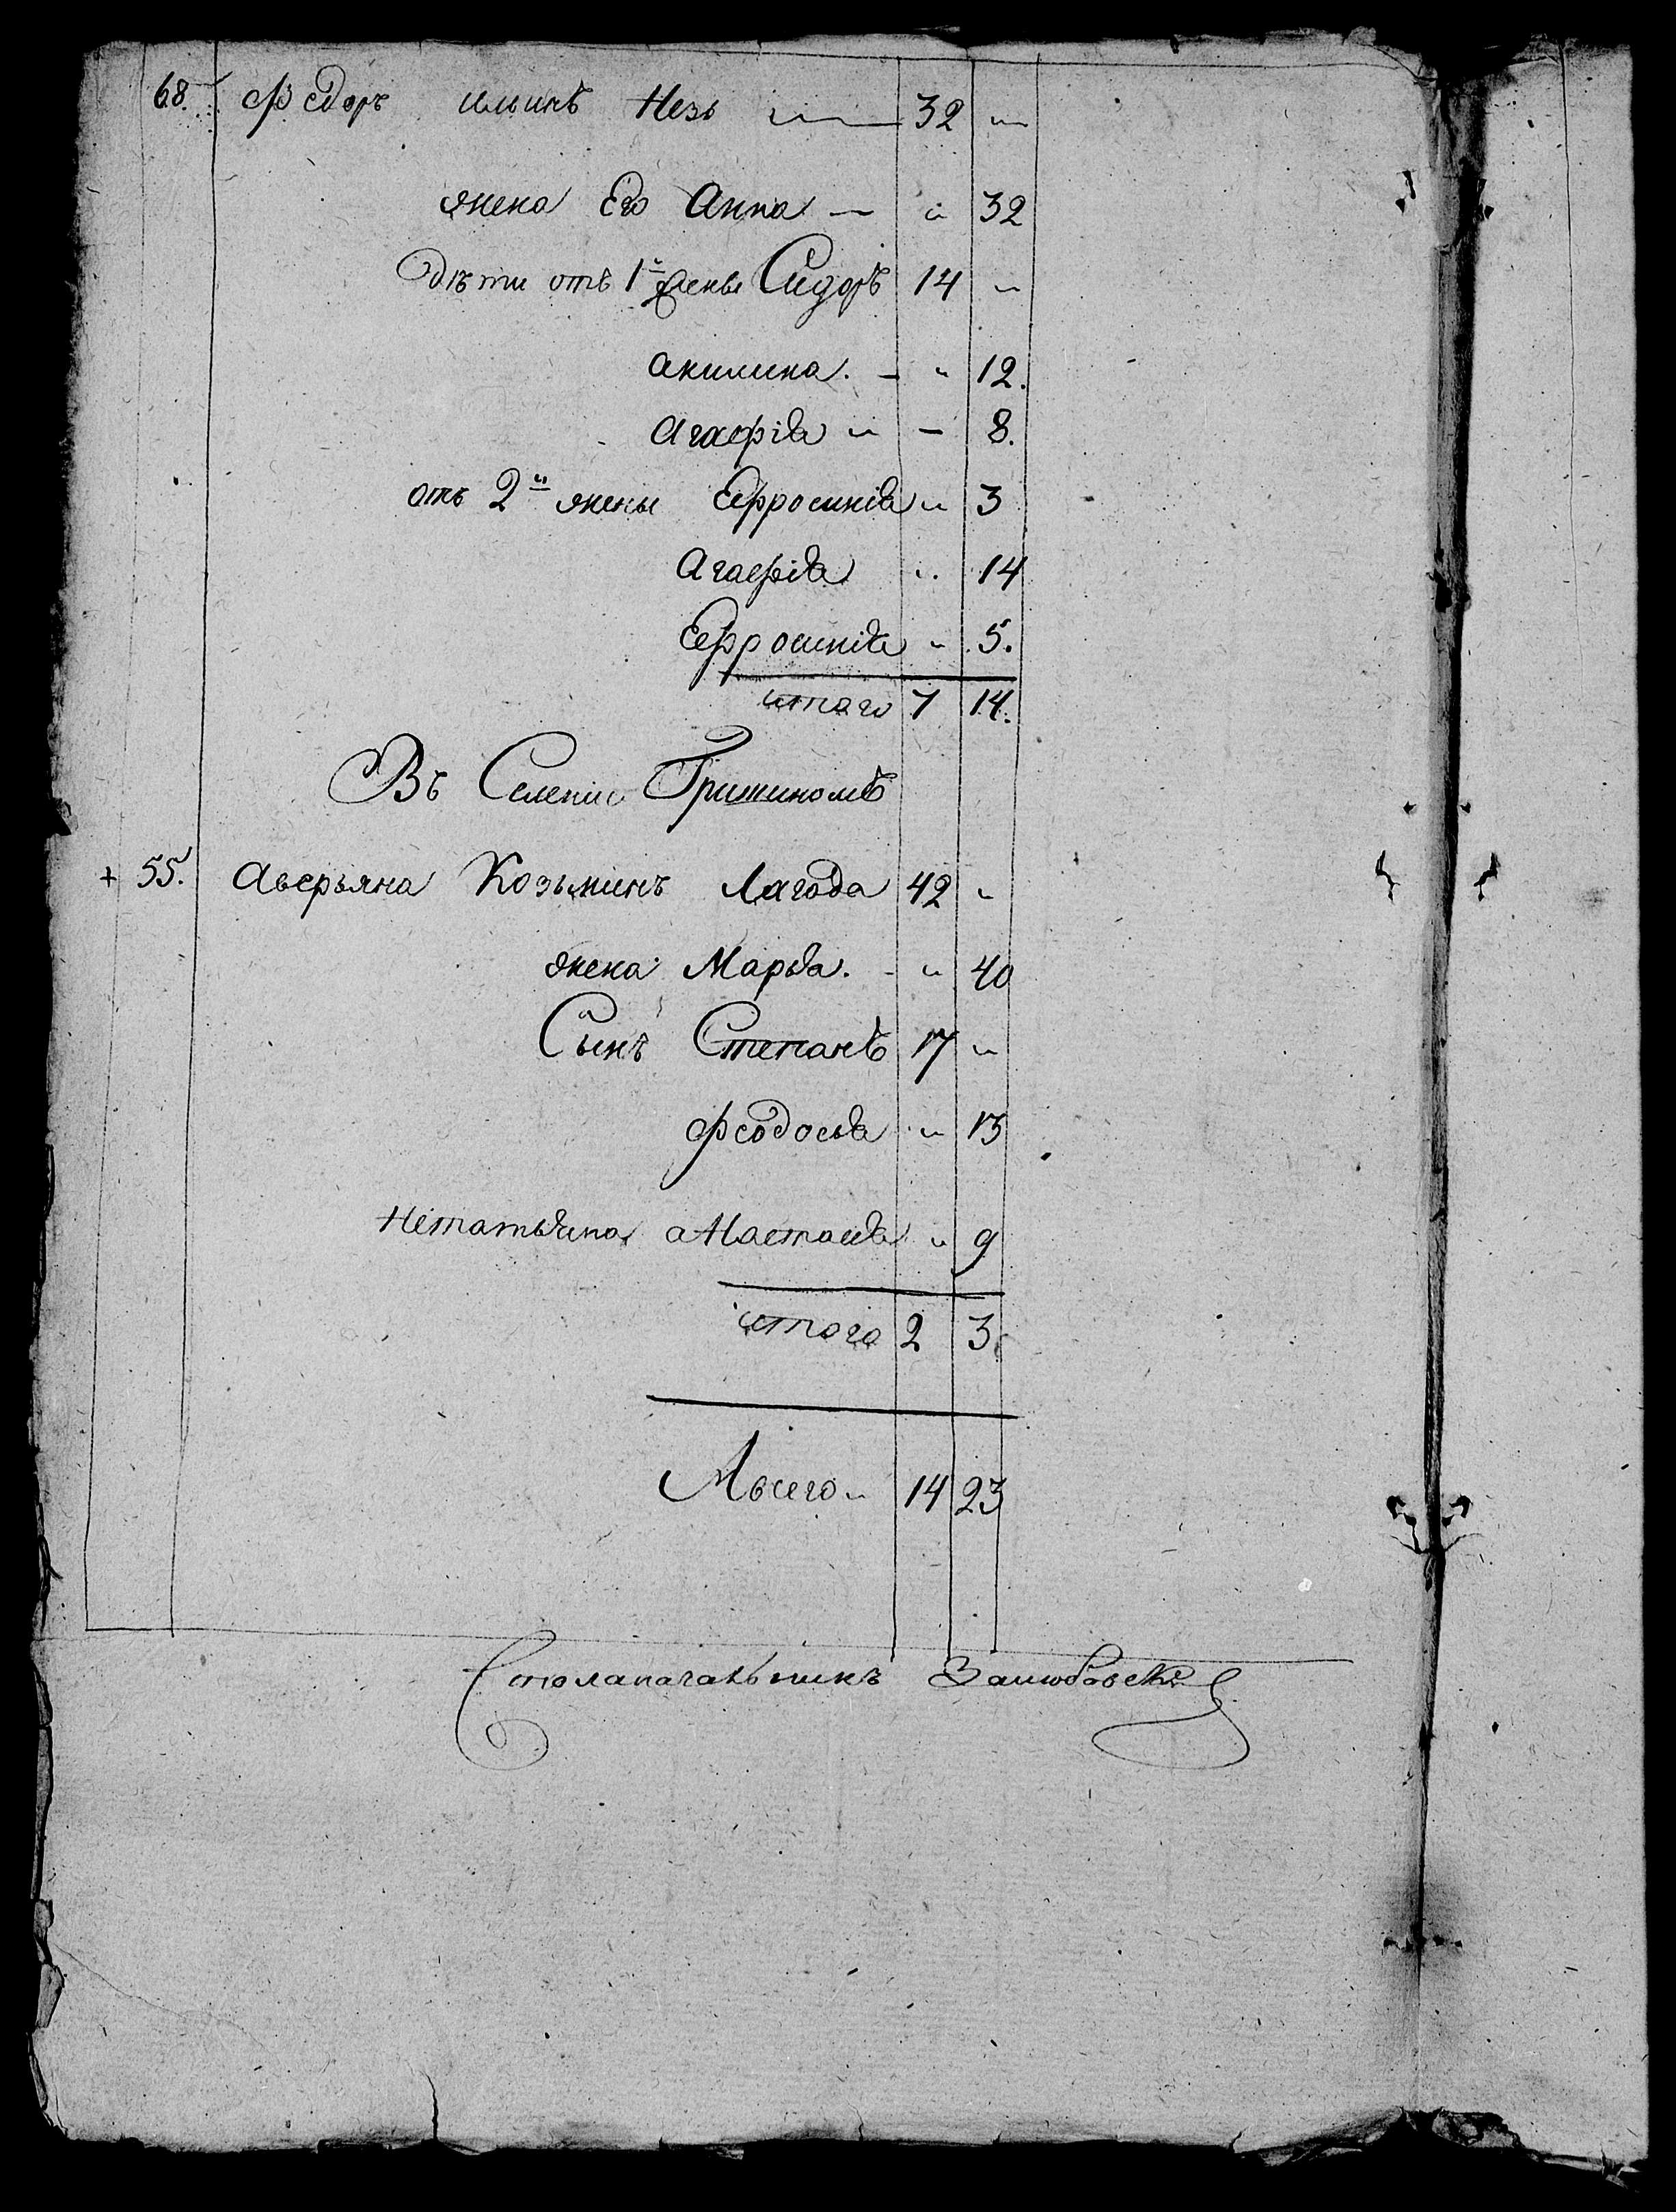 68. Федоръ ильинъ Незь 32 „
жена Его Анна — „ 32
Дѣти отъ 1й жены Сидоръ 14 „
Акилина. — „ 12.
Агафія „ — 8.
отъ 2й жены Ефросинія „ 3
Агафія „ 14
Ефросинія „ 5.
итого 7 14.
Въ Селеніи Гришиномъ
+ 55. Аверьяна Козьминъ Лагода 42 „
жена Марья. - „ 40
Сынъ Степанъ 17 „
Феодосья „ 13
Настасія „ 9
итого 2 3
А всего „ 14 23
Столаначальникъ